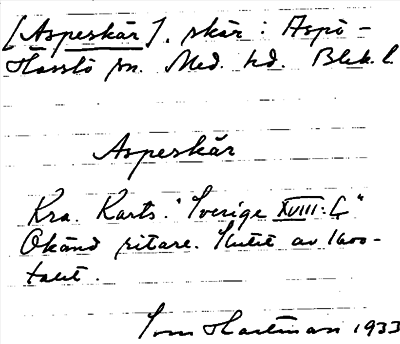 [Aspeskär], skär: Aspö-
Hasslö sn. Med. hd. Blek. l.
Aspeskär
Kra. Karts. "Sverige XVIII:4"
Okänd ritare. Slutet av 1600-
talet.
Hartman 1933